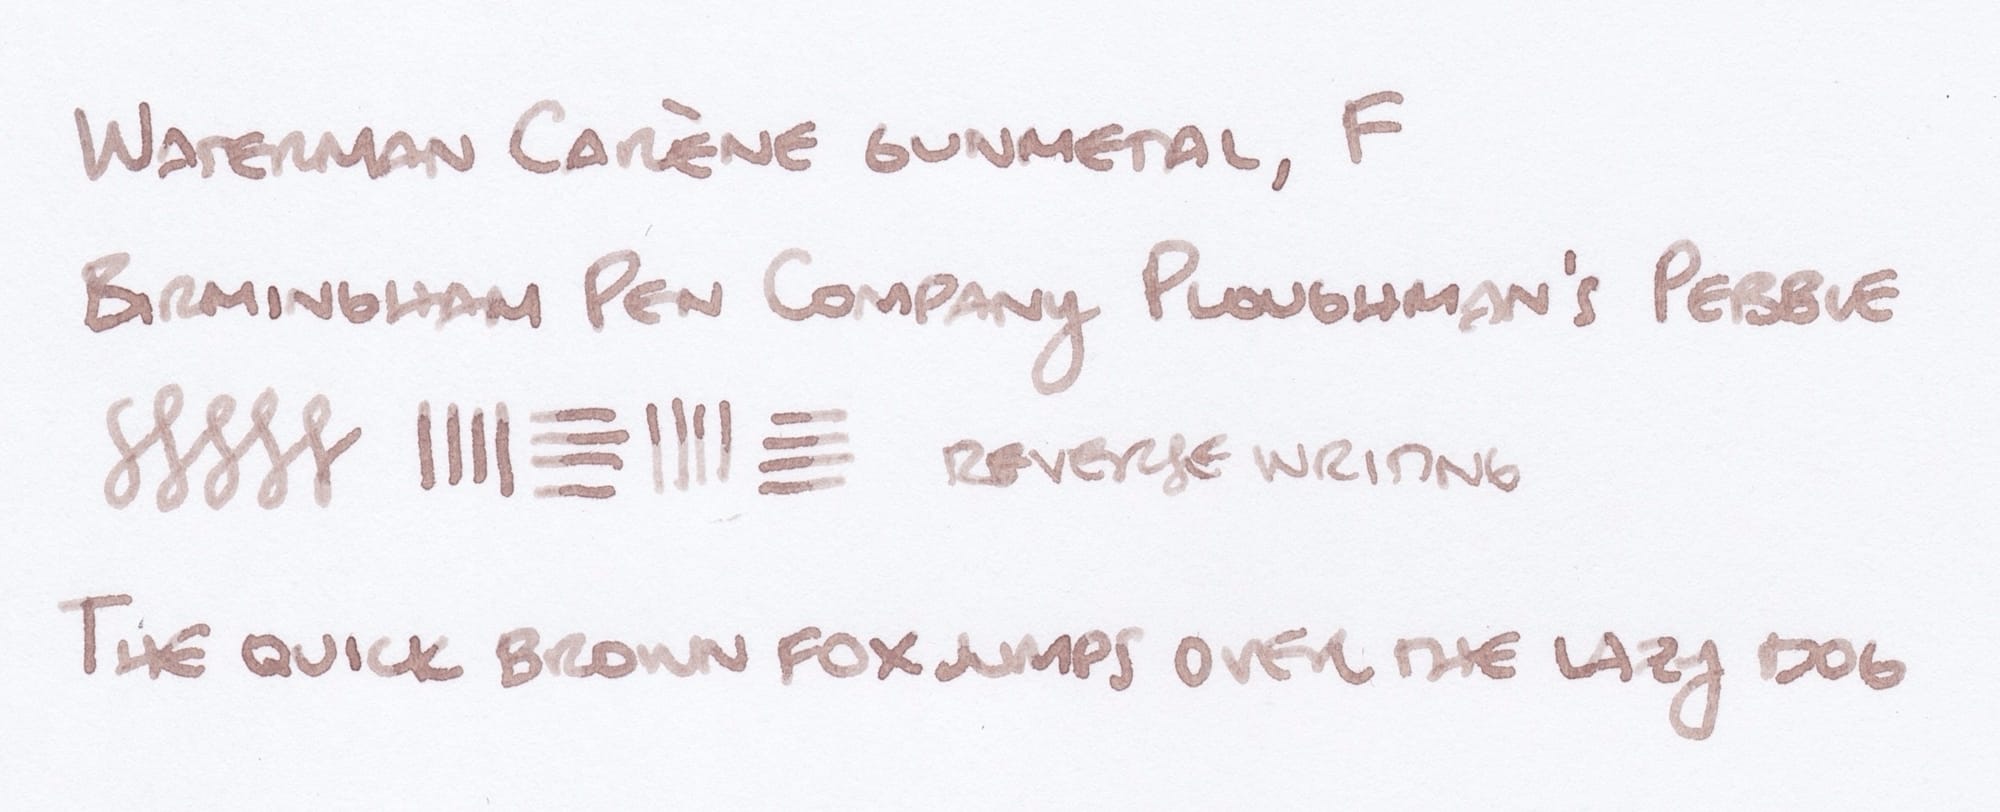 Waterman Carène gunmetal, F
Birmingham Pen Company Ploughman's Pebble
reverse writing
The quick brown fox jumps over the lazy dog